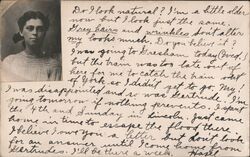 Do I look natural? I'm a little older
now but I look just the same.
Grey hairs and wrinkles don't alter
my looks much. Do you believe it?
I was going to to-day (Wed)
but the train was too late to get
here for me to catch the train out
of York so I didn't get to go. My!
I was disappointed and it was te
going tomorrow if nothing prevents. I spent
the 4th and Sunday in Lincoln. Just came
home in time to escape the flood there.
I believe I owe you a letter but don't look
for an answer until I come home from
Gertrudes. I'll be there a week. Hazel